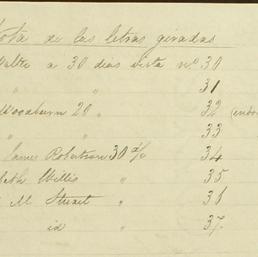 Nota de las letras giradas
a 30 dias vista nº 30
" " 31
Woodburn 20 " 32
" " 33
James Robertson 30 d/ 34
Willis " 35
M. Stuart " 36
id " 37